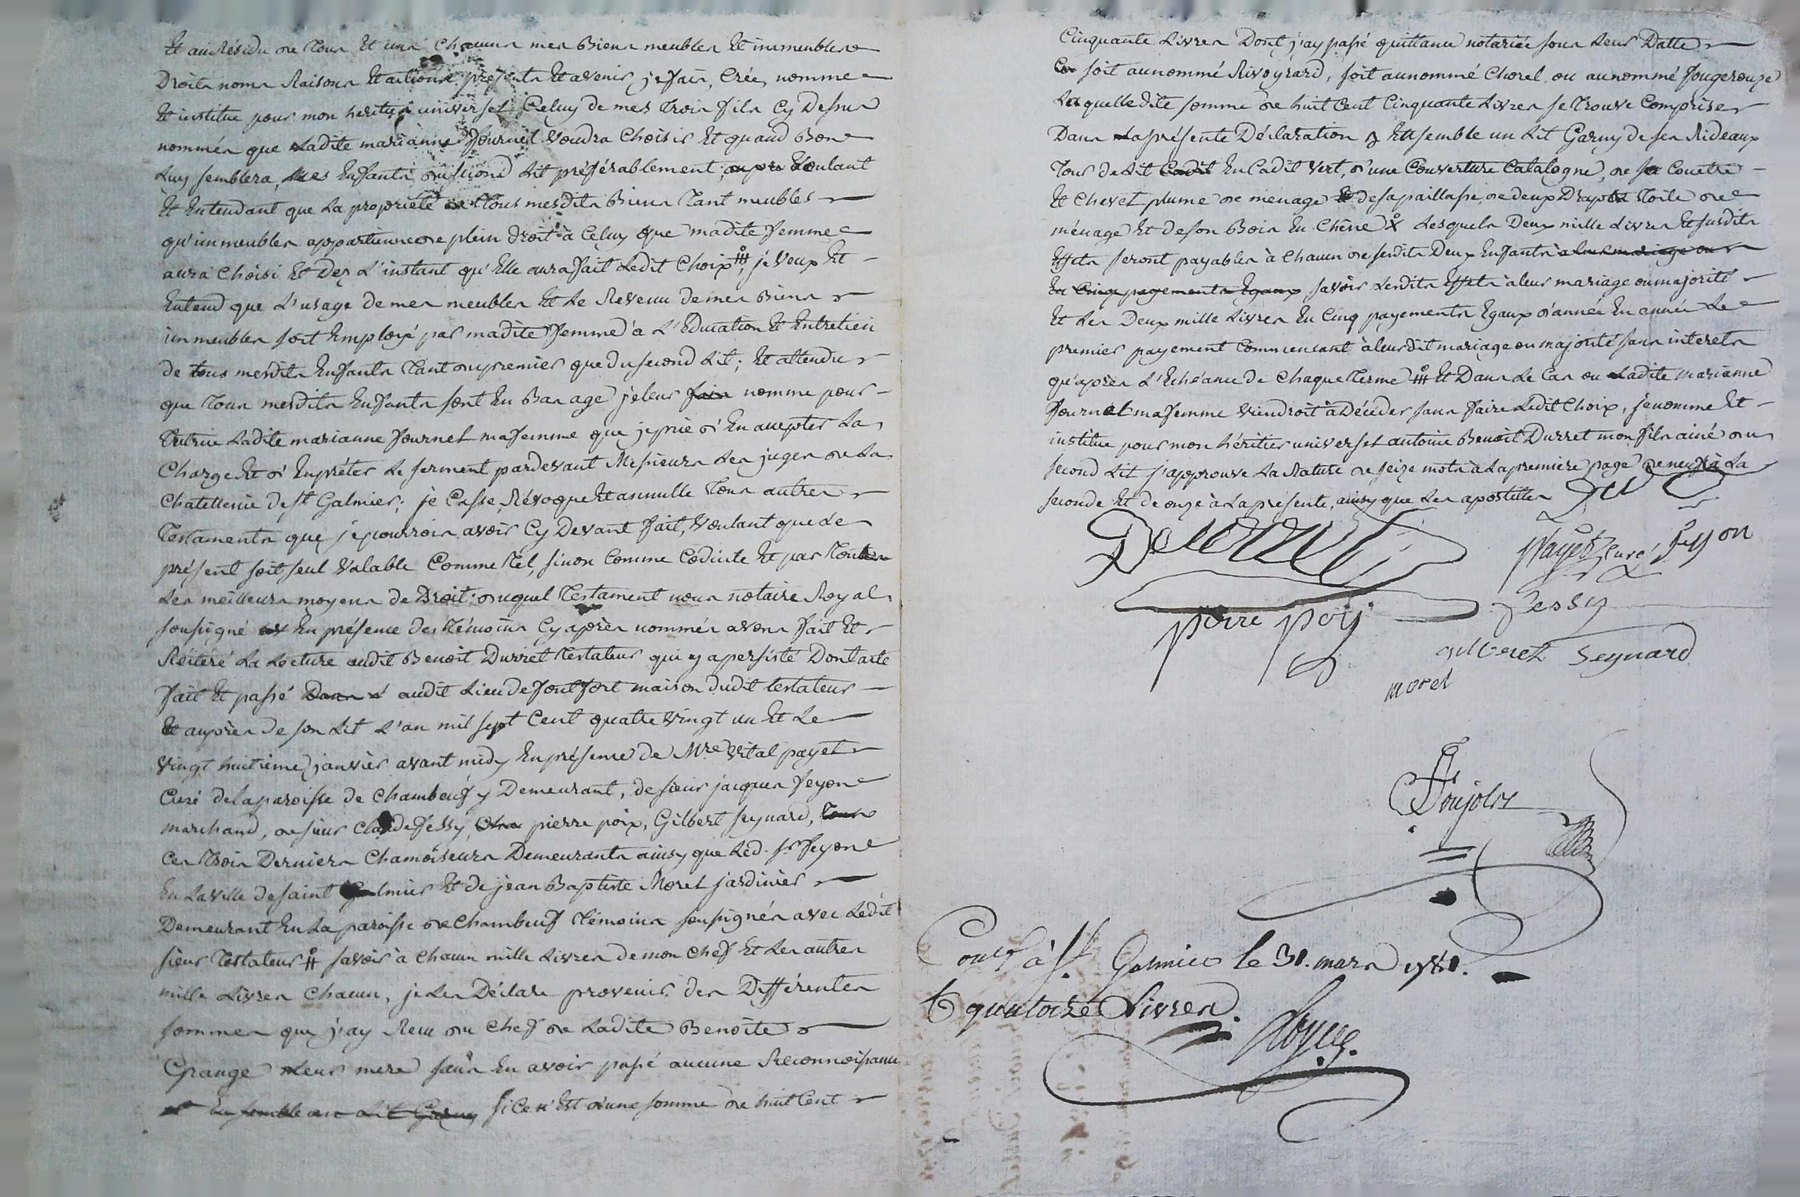 Et au Résidu de tous Et uns Chacuns mes Biens meubles Et immeubles
Droits noms Raisons Et actions présents Et avenir, je fais, Crée, nomme
Et institue pour mon heritier universel Celuy de mes Trois fils Cy Dessus
nommés que Ladite marianne Fournel voudra Choisir Et quand Bon
Luy semblera, des Enfants du second Lit préférablement, voulant
Et Entendant que La propriété de Tous mesdits Biens Tant meubles
qu'immeubles appartienne de plein Droit à Celuy que madite femme
aura Choisi Et Dez L'instant qu'Elle aura fait Ledit Choix, je veux Et
Entend que L'usage de mes meubles Et Le Revenu de mes Biens
immeubles soit Employé par madite femme à L'Education Et Entretien
de tous mesdits Enfants Tant du premier que du second Lit; Et attendu
que Tous mesdits Enfants sont En Bas age je leur nomme pour
Tutrice Ladite marianne Fournel ma femme que je prie d'En accepter La
Charge Et d'En prêter Le serment pardevant Messieurs Les juges de La
Chatellenie de St Galmier; je Casse, Révoque Et annulle Tous autres
Testaments que je pourrois avoir Cy Devant fait, voulant que Le
présent soit seul valable Comme Tel, sinon Comme Codicile Et par Toutes
Les meilleurs moyens de Droit; duquel Testament nous notaire Royal
soussigné En présence des Témoins Cy après nommés avons fait Et
Réitéré La Lecture audit Benoit Durret Testateur qui y a persisté Dont acte
fait Et passé audit Lieu de Fontfort maison dudit testateur
Et auprès de son Lit L'an mil sept Cent quatre vingt un Et Le
vingt huitième janvier avant midy En présence de Mre Vital payet
Curé de La paroisse de Chambeuf y Demeurant, de sieur jacques Feyon
marchand, de sieur Claude Fessy, pierre poix, Gilbert Seynard,
Ces Trois Derniers Chamoiseurs Demeurants ainsy que Led. Sr Feyon
En La ville de saint Galmier Et de jean Baptiste Morel jardinier
Demeurant En La paroisse de Chambeuf Témoins soussignés avec Ledit
sieur Testateur # savoir à Chacun mille Livres de mon Chef Et Les autres
mille Livres Chacun, je Les Déclare provenir des Différentes
sommes que j'ay Reçu du Chef de Ladite Benoite
Grange Leur mere sans En avoir passé aucune Reconnoissance
Ensemble un Lit Garny si Ce n'Est d'une somme de huit Cent
Cinquante Livres Dont j'ay passé quittance notariée sous Leur Datte
soit au nommé Rivoyrard, soit au nommé Chorel, ou au nommé Fougerouze
Laquelle dite somme de huit Cent Cinquante Livres se Trouve Comprise
Dans La présente Déclaration Ensemble un Lit Garny de ses Rideaux
Tour de Lit En Cadit vert, d'une Couverture Catalogne, de sa Couetre
Et Chevet plume de menage de sa paillasse, de deux Draps Toile de
ménage Et de son Bois En Chêne Lesquels Deux mille Livres Et susdits
Effets seront payables à Chacun de sesdits Deux Enfants à Leur mariage ou
En Cinq payements Egaux savoir Lesdits Effets à leur mariage ou majorité
Et Les Deux mille Livres En Cinq payements Egaux d'année En année Le
premier payement Commencant à leurdit mariage ou majorité sans interets
qu'après L'Echéance de Chaque Terme # Et Dans Le Cas ou Ladite marianne
Fournel ma femme viendroit à Décéder sans faire Ledit Choix, je nomme Et
institue pour mon héritier universel antoine Benoit Durret mon fils ainé du
second Lit j'approuve La Rature de seize mots à La première page de neuf à La
seconde Et de onze à La présente, ainsy que Les apostilles
Durret
payet curé feyon
fessy
pierre poix
gilbert Seynard
morel
Poujolat
Conlé à St Galmier le 31. mars 1781.
quatorze Livres.